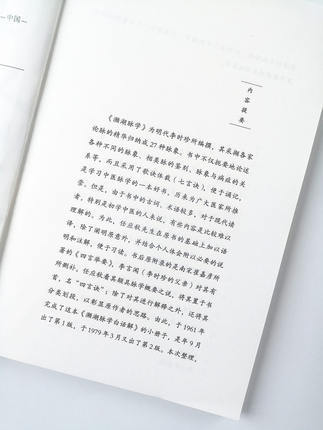 —中国—
内容提要
《濒湖脉学》为明代李时珍所编撰,其采撷各家
论脉的精华归纳成27种脉象。书中不仅扼要地论述
各种不同的脉象、相类脉的鉴别、脉象与病症的关
系等,而且采用了歌诀体裁(七言诀),便于诵记,
是学习中医脉学的一本好书,历来为广大医家所推
崇。但是,由于书中的古词、术语较多,对于现代读
者,特别是初学中医的人来说,有些内容是比较难以
理解的。为此,任应秋先生在原书的基础上加以语
译,除了阐明原意外,并结合个人体会附以必要的说
明和注解,便于习读。书后原附录的是南宋崔嘉彦所
著的《四言举要》,李言闻(李时珍的父亲)对其有
所删补。任应秋看其颇具脉学概要之说,将其置于书
首,名“四言诀”;除了对其进行解释之外,还将其
分类划段,以彰显原作者的思路。由此,于1961年
完成了这本《濒湖脉学白话解》的小册子,是年9月
出了第1版,于1979年3月又出了第2版。本次整理,